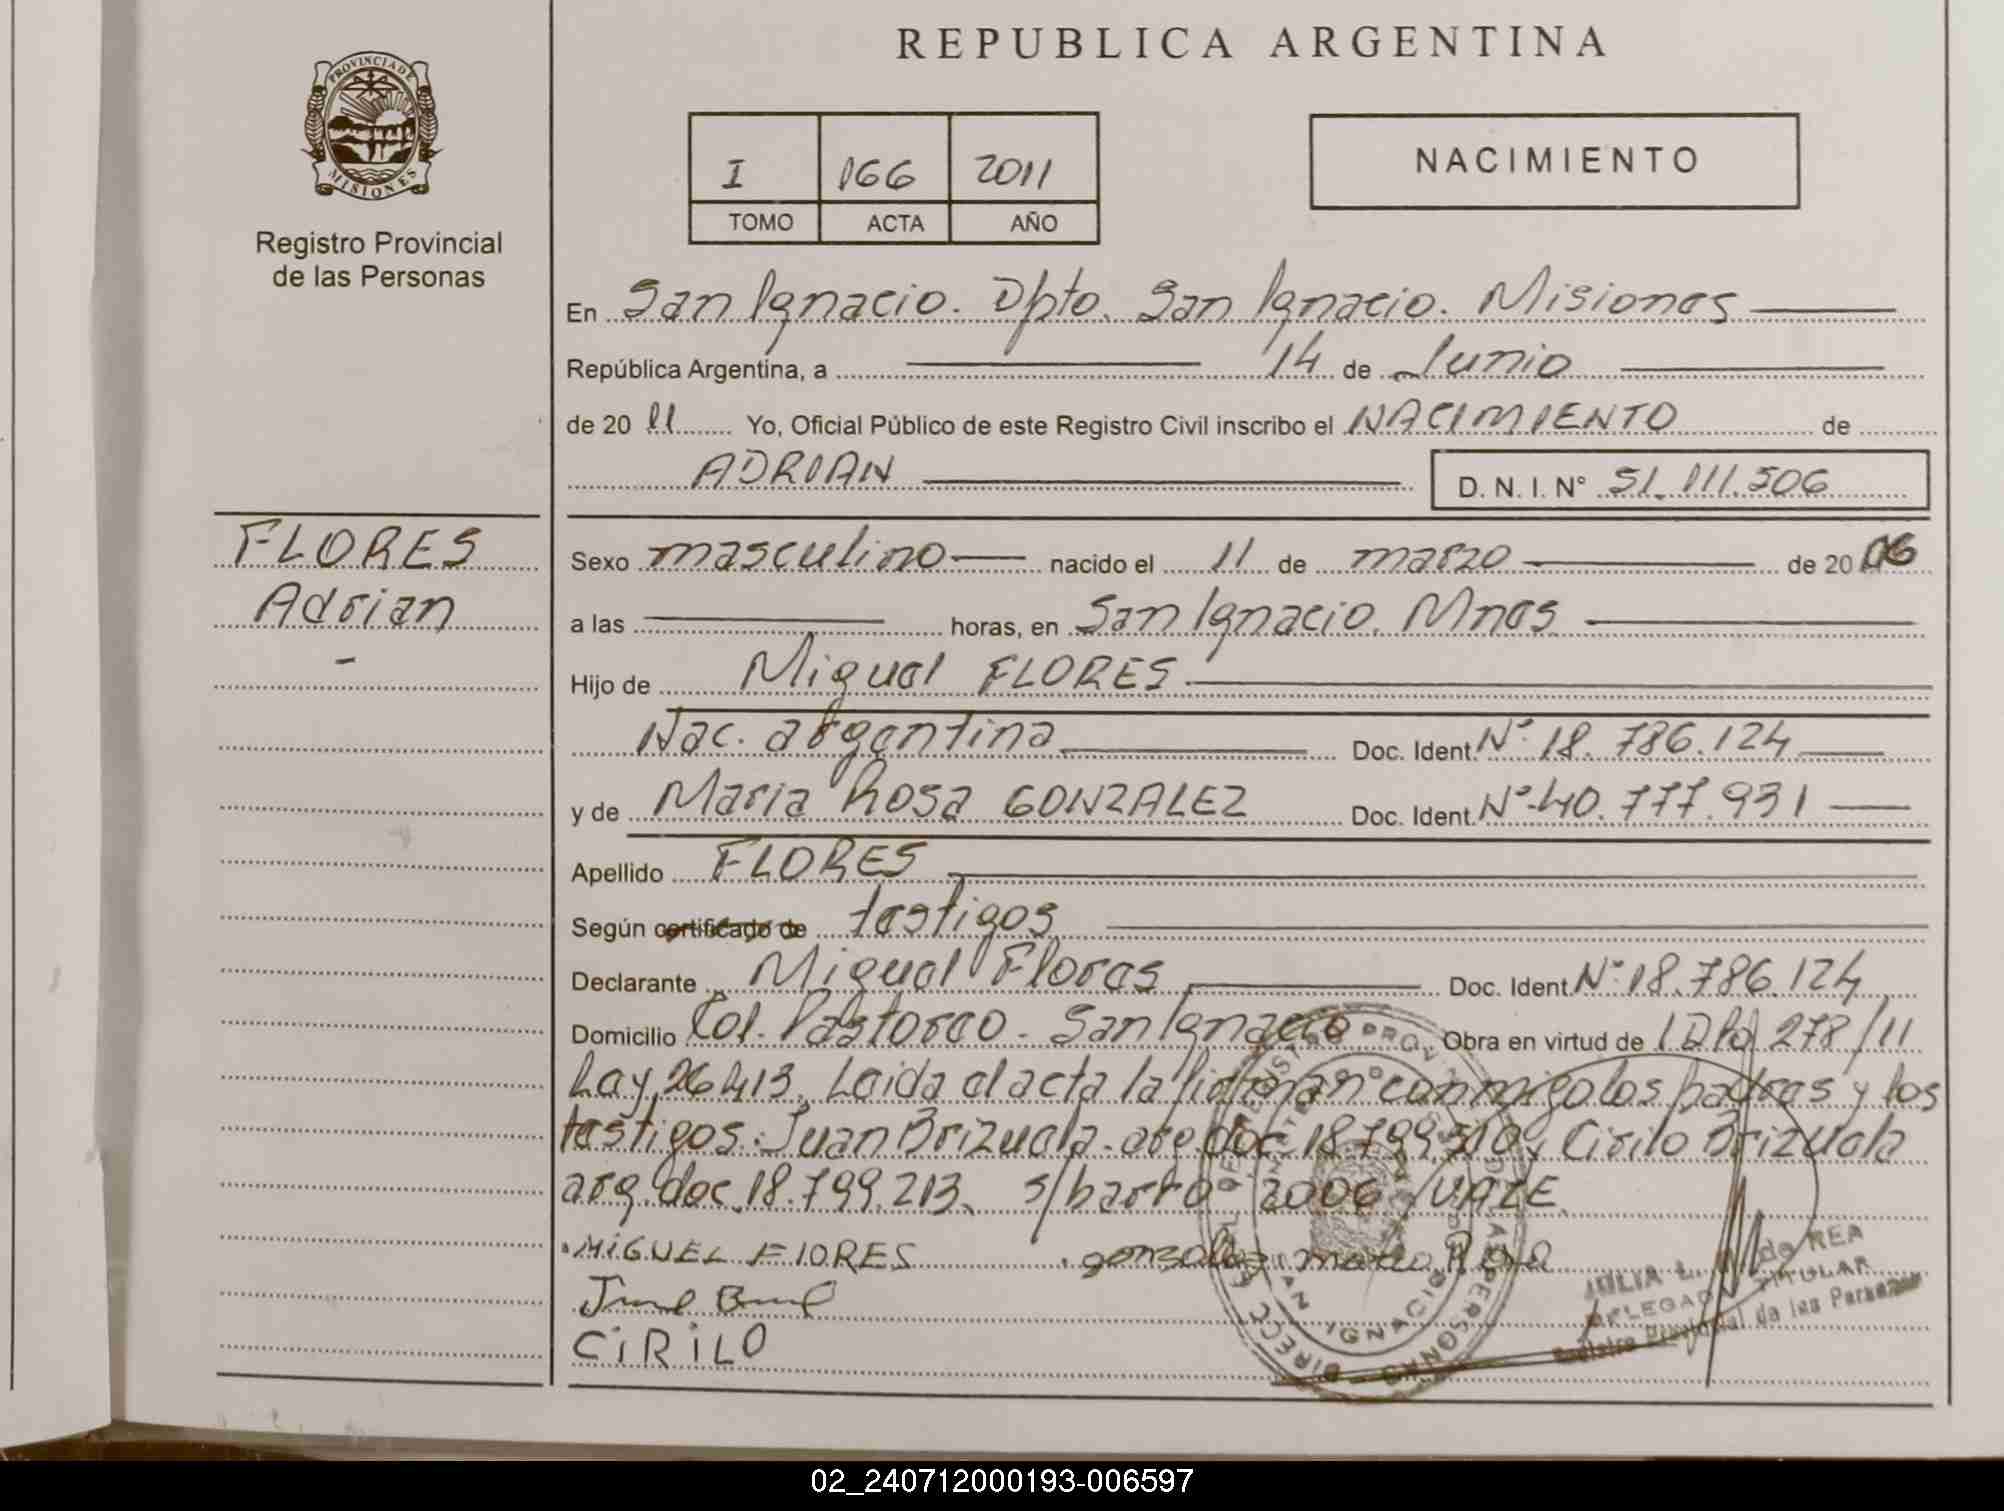 REPUBLICA ARGENTINA
PROVINCIA DE MISIONES
Registro Provincial
de las Personas
I 166 2011
TOMO ACTA AÑO
NACIMIENTO
En San Ignacio. Dpto. San Ignacio. Misiones
República Argentina, a 14 de Junio
de 20 11 Yo, Oficial Público de este Registro Civil inscribo el NACIMIENTO de
ADRIAN D. N. I. N° 51.111.506
FLORES
Adrian
-
Sexo masculino nacido el 11 de marzo de 20 06
a las horas, en San Ignacio. Mnes
Hijo de Miguel FLORES
Nac. argentina Doc. Ident. N° 18.786.124
y de Maria Rosa GONZALEZ Doc. Ident. N° 40.777.931
Apellido FLORES
Según certificado de testigos
Declarante Miguel Flores Doc. Ident N° 18.786.124
Domicilio Col. Pastoreo - San Ignacio Obra en virtud de 278/11
Ley 26.413. Leida el acta la firman conmigo los padres y los
testigos: Juan Brizuela - arg. doc 18.799.510, Cirilo Brizuela
arg. doc. 18.799.213. s/barro 2006 VALE
MIGUEL FLORES gonzales maria Rosa
CIRILO
JULIA L. de REA
DELEGADA TITULAR
Registro Provincial de las Personas
02_240712000193-006597